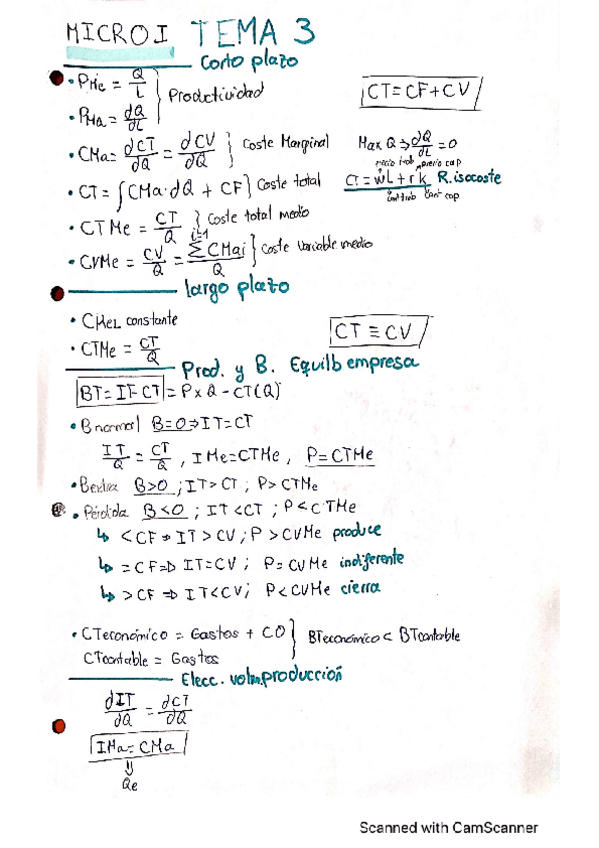 MICRO I TEMA 3
Corto plazo
• PMe = Q/L } Productividad
CT = CF + CV
• PMa = dQ/dL
• CMa = dCT/dQ = dCV/dQ } Coste Marginal
Max Q ⇒ dQ/dL = 0
precio trab precio cap
• CT = ∫CMa·dQ + CF } Coste total
CT = wL + rK R. isocoste
cant trab cant cap
• CTMe = CT/Q } Coste total medio
• CVMe = CV/Q = Σ i=1 CMai / Q } Coste variable medio
largo plazo
• CMeL constante
CT ≡ CV
• CTMe = CT/Q
Prod. y B. Equilb empresa
BT = IT - CT = P x Q - CT(Q)
• B normal B=0 ⇒ IT = CT
IT/Q = CT/Q , IMe = CTMe , P = CTMe
• Bextra B>0 ; IT > CT ; P > CTMe
• Pérdida B<0 ; IT < CT ; P < CTMe
↳ < CF ⇒ IT > CV ; P > CVMe produce
↳ = CF ⇒ IT = CV ; P = CVMe indiferente
↳ > CF ⇒ IT < CV ; P < CVMe cierra
• CTeconómico = Gastos + CO } BTeconómico < BTcontable
CTcontable = Gastos
Elecc. volm. producción
dIT/dQ = dCT/dQ
IMa = CMa
⇓
Qe
Scanned with CamScanner